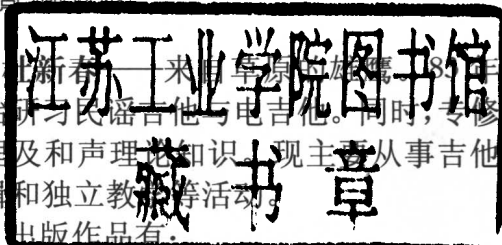 江苏工业学院图书馆
藏书章
杜新春——来自草原的雄鹰 85年
研习民谣吉他与电吉他。同时,专修
及和声理论知识。现主要从事吉他
和独立教学等活动。
出版作品有: